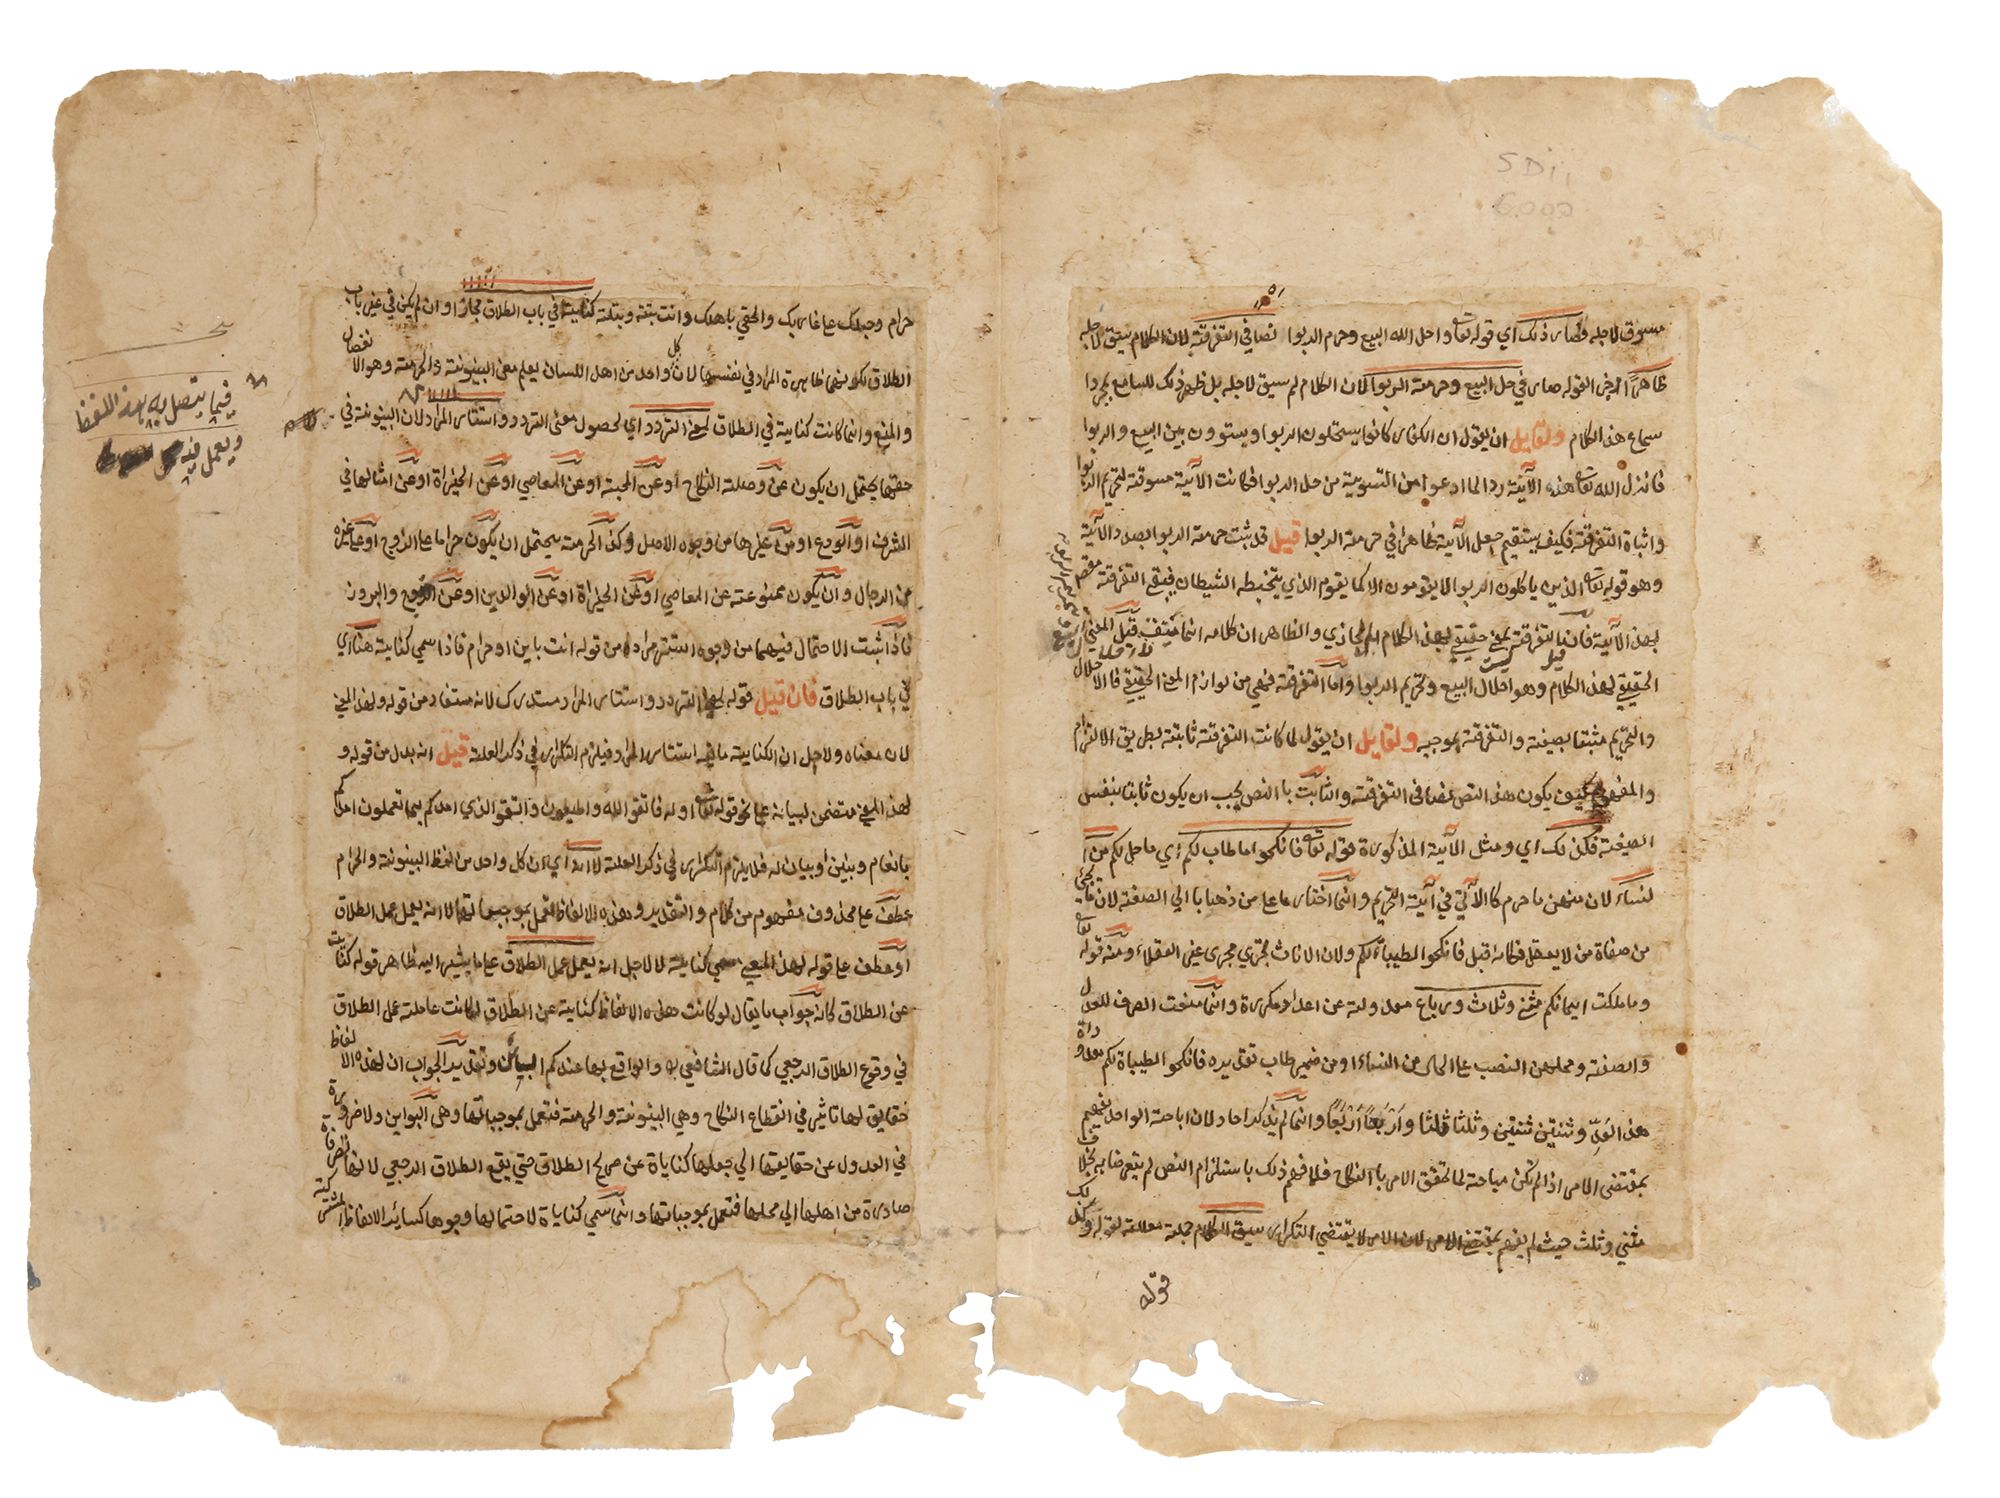 مسوق لاجله فصار ذلك اي قوله تعا واحل الله البيع وحرم الربوا نصا في التفرقة لان الكلام سيق لاجله
ظاهرا لان القوله صار في حل البيع وحرمة الربوا لان الكلام لم سيق لاجله بل ظهر ذلك للسامع بمجردا
سماع هذا الكلام ولقايل ان يقول ان الكفار كانوا يستحلون الربوا ويستوون بين البيع والربوا
فانزل الله تعا هذه الآية ردا لما ادعوا من التسوية من حل الربوا فكانت الآية مسوقة لتحريم الربوا
واثباة التفرقة فكيف يستقيم جعل الآية ظاهرا في حرمة الربوا قيل قد ثبت حرمة الربوا بصدر الآية
وهو قوله تعا الذين ياكلون الربوا لا يقومون الا كما يقوم الذي يتخبطه الشيطان فبقي التفرقة
بهذا الآية فان التفرقة بمعني حقيقي لهذا الكلام ام مجازي والظاهر ان كلامه قيل المعني
الحقيقي لهذا الكلام وهو احلال البيع وتحريم الربوا واما التفرقة فهي من لوازم المعني الحقيقي فالاحلال
والتحريم مثبتا بصيغة والتفرقة بموجبه ولقايل ان يقول لما كانت التفرقة ثابتة بطريق الالتزام
والمفهوم كيف يكون هذا النص نصا في التفرقة والثابت باالنص يجب ان يكون ثابتا بنفس
الصيغة فكذلك اي ومثل الآية المذكورة قوله تعا فانكحوا ما طاب لكم اي ما حل لكم من ا
لنساء لان منهن ما حرم كالآتي في آية التحريم وانما اختار ما علي من ذهابا الي الصفة لان ما يجئ
من صفاة من لا يعقل فكانه قيل فانكحوا لطيباة لكم ولان الاناث تجري مجري غير العقلاء ومنه قوله تعا
وما ملكت ايمانكم مثني وثلاث ورباع معدولة عن اعداد مكررة وانما منعت الصرف للعدل
والصفة ومحلهن النصب علي الحال من النساء او من ضمير طاب تقديره فانكحوا لطيباة لكم معدوداة
هذا العدد وثنتين ثنتين وثلثا ثلثا وأربعا أربعا وانما لم يذكر احاد لان اباحة الواحد يفهم
بمقتضي الامر اذ لم تكن مباحة لما تحقق الامر باالنكاح فلا فهم ذلك باستلزام النص لم يتعرض به بخلاف
مثني وثلث حيث لم يفهم بمقتضي الامر لان الامر لا يقتضي التكرار سيق الكلام جملة معللة لقوله وكذلك
قوله
حرام وحبلك علي غاربك والحقي باهلك وانت بتة وبتلة كناية في باب الطلاق مجازا وان لم يكن في غير باب
الطلاق لكونها ظاهرة المراد في نفسها لان كل واحد من اهل اللسان يعلم معني البينونة والحرمة وهو الانفصال
والمنع وانما كانت كناية في الطلاق لمعني التردد اي لحصول معني التردد واستتار المراد لان البينونة في
حقها يحتمل ان يكون عن وصلة النكاح او عن المحبة او عن المعاصي او عن الخيراة او عن امثالها في
الشرف او الورع او من غيرها من وجوه الاصل وكذا الحرمة يحتمل ان يكون حراما علي الزوج او علي غيره
من الرجال وان يكون ممنوعة عن المعاصي او عن الخيراة او عن الوالدين او عن الخروج والبروز
فاذا ثبت الاحتمال فيهما من وجوه استتر مراده من قوله انت باين او حرام فاذا سمي كناية هنا اي
في باب الطلاق فان قيل قوله لمعني التردد واستتار المراد مستدرك لانه مستفاد من قوله ولهذا المعني
لان معناه ولاجل ان الكناية ما فيه استتار المراد فيلزم التكرار في ذكر العلة قيل انه بدل من قوله و
لهذا المعني متضمن لبيانه علي نحو قوله تعا اوله فاتقوا الله واطيعون واتقوا الذي امدكم بما تعملون امدكم
بانعام وبنين او بيان له فلا يلزم التكرار في ذكر العلة لا انه اي ان كل واحد من لفظ البينونة والحرام
عطف علي محذوف مفهوم من كلام والتقدير وهذه الالفاظ تعمل بموجبها لا انه يعمل عمل الطلاق
او عطف علي قوله لهذا المعني سمي كناية لا لاجل انه يعمل عمل الطلاق علي ما يشير اليه ظاهر قوله كناية
عن الطلاق كانه جواب ما يقال لو كانت هذه الالفاظ كناية عن الطلاق لكانت عاملة عمل الطلاق
في وقوع الطلاق الرجعي كما قال الشافعي به والواقع بها عندكم البيان وتقدير الجواب ان لهذه الالفاظ
حقايق لها تاثير في انقطاع النكاح وهي البينونة والحرمة فتعمل بموجباتها وهي البواين ولا ضرورة
في العدول عن حقايقها الي جعلها كناياة عن صريح الطلاق حتي يقع الطلاق الرجعي لانها
صادرة من اهلها الي محلها فتعمل بموجباتها وانما سمي كناياة لاحتمالها وجوها كسائر الالفاظ المشتركة
فيما يتصل به هذا اللفظ
ويعمل فيه